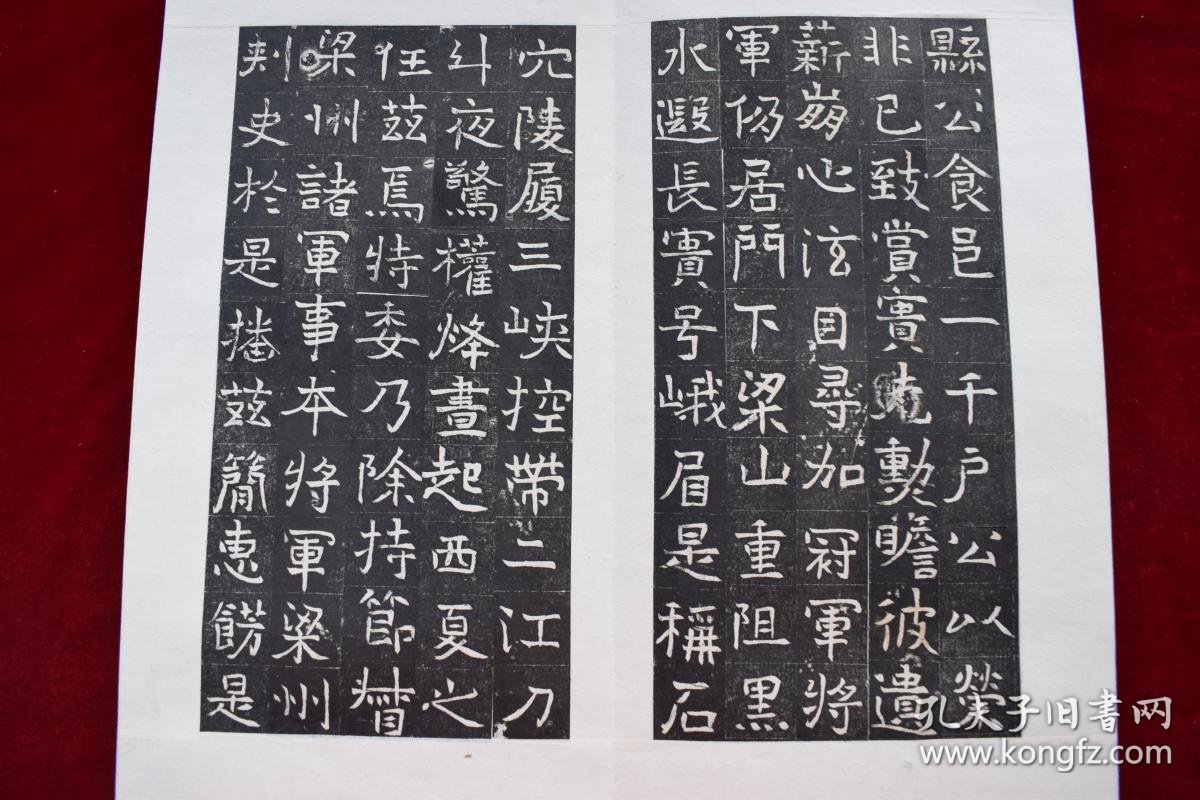 縣公食邑一千戶公以榮
非已致賞實克勲瞻彼遺
薪崩心泫目尋加冠軍將
軍仍居門下梁山重阻黑
水遐長實号峨眉是稱石
穴陵履三峽控帶二江刀
斗夜驚權烽晝起西夏之
任茲焉特委乃除持節督
梁州諸軍事本將軍梁州
刺史於是播茲簡惠餝是
孔夫子旧書网
www.kongfz.com